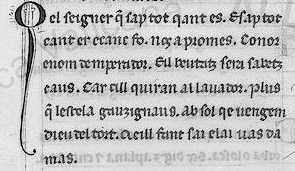 Qel seigner q̃ sap tot qant es. E sap tot
cant er ecanc fo. nos a promes. Conor
enom temperador. Eil beutatz sera sabetz
caus. Car cill quiran al lauador. plus
q̃ lestela gauzignaus. Ab sol qe uengem
dieu del tort. qeill funt sai elai uas da
mas.